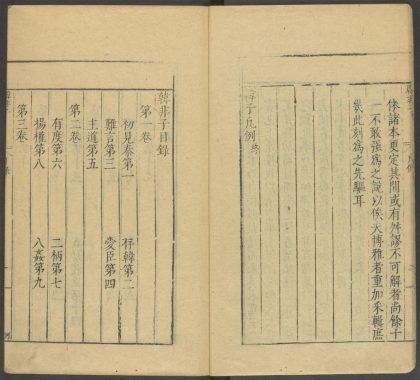 依諸本更定其間或有舛謬不可解者尚餘十
一不敢強為之說以俟大博雅者重加采輯庶
幾此刻為之先驅耳
韓子凡例終
韓非子目錄
第一卷
初見秦第一 存韓第二
難言第三 愛臣第四
主道第五
第二卷
有度第六 二柄第七
揚權第八 八姦第九
第三卷